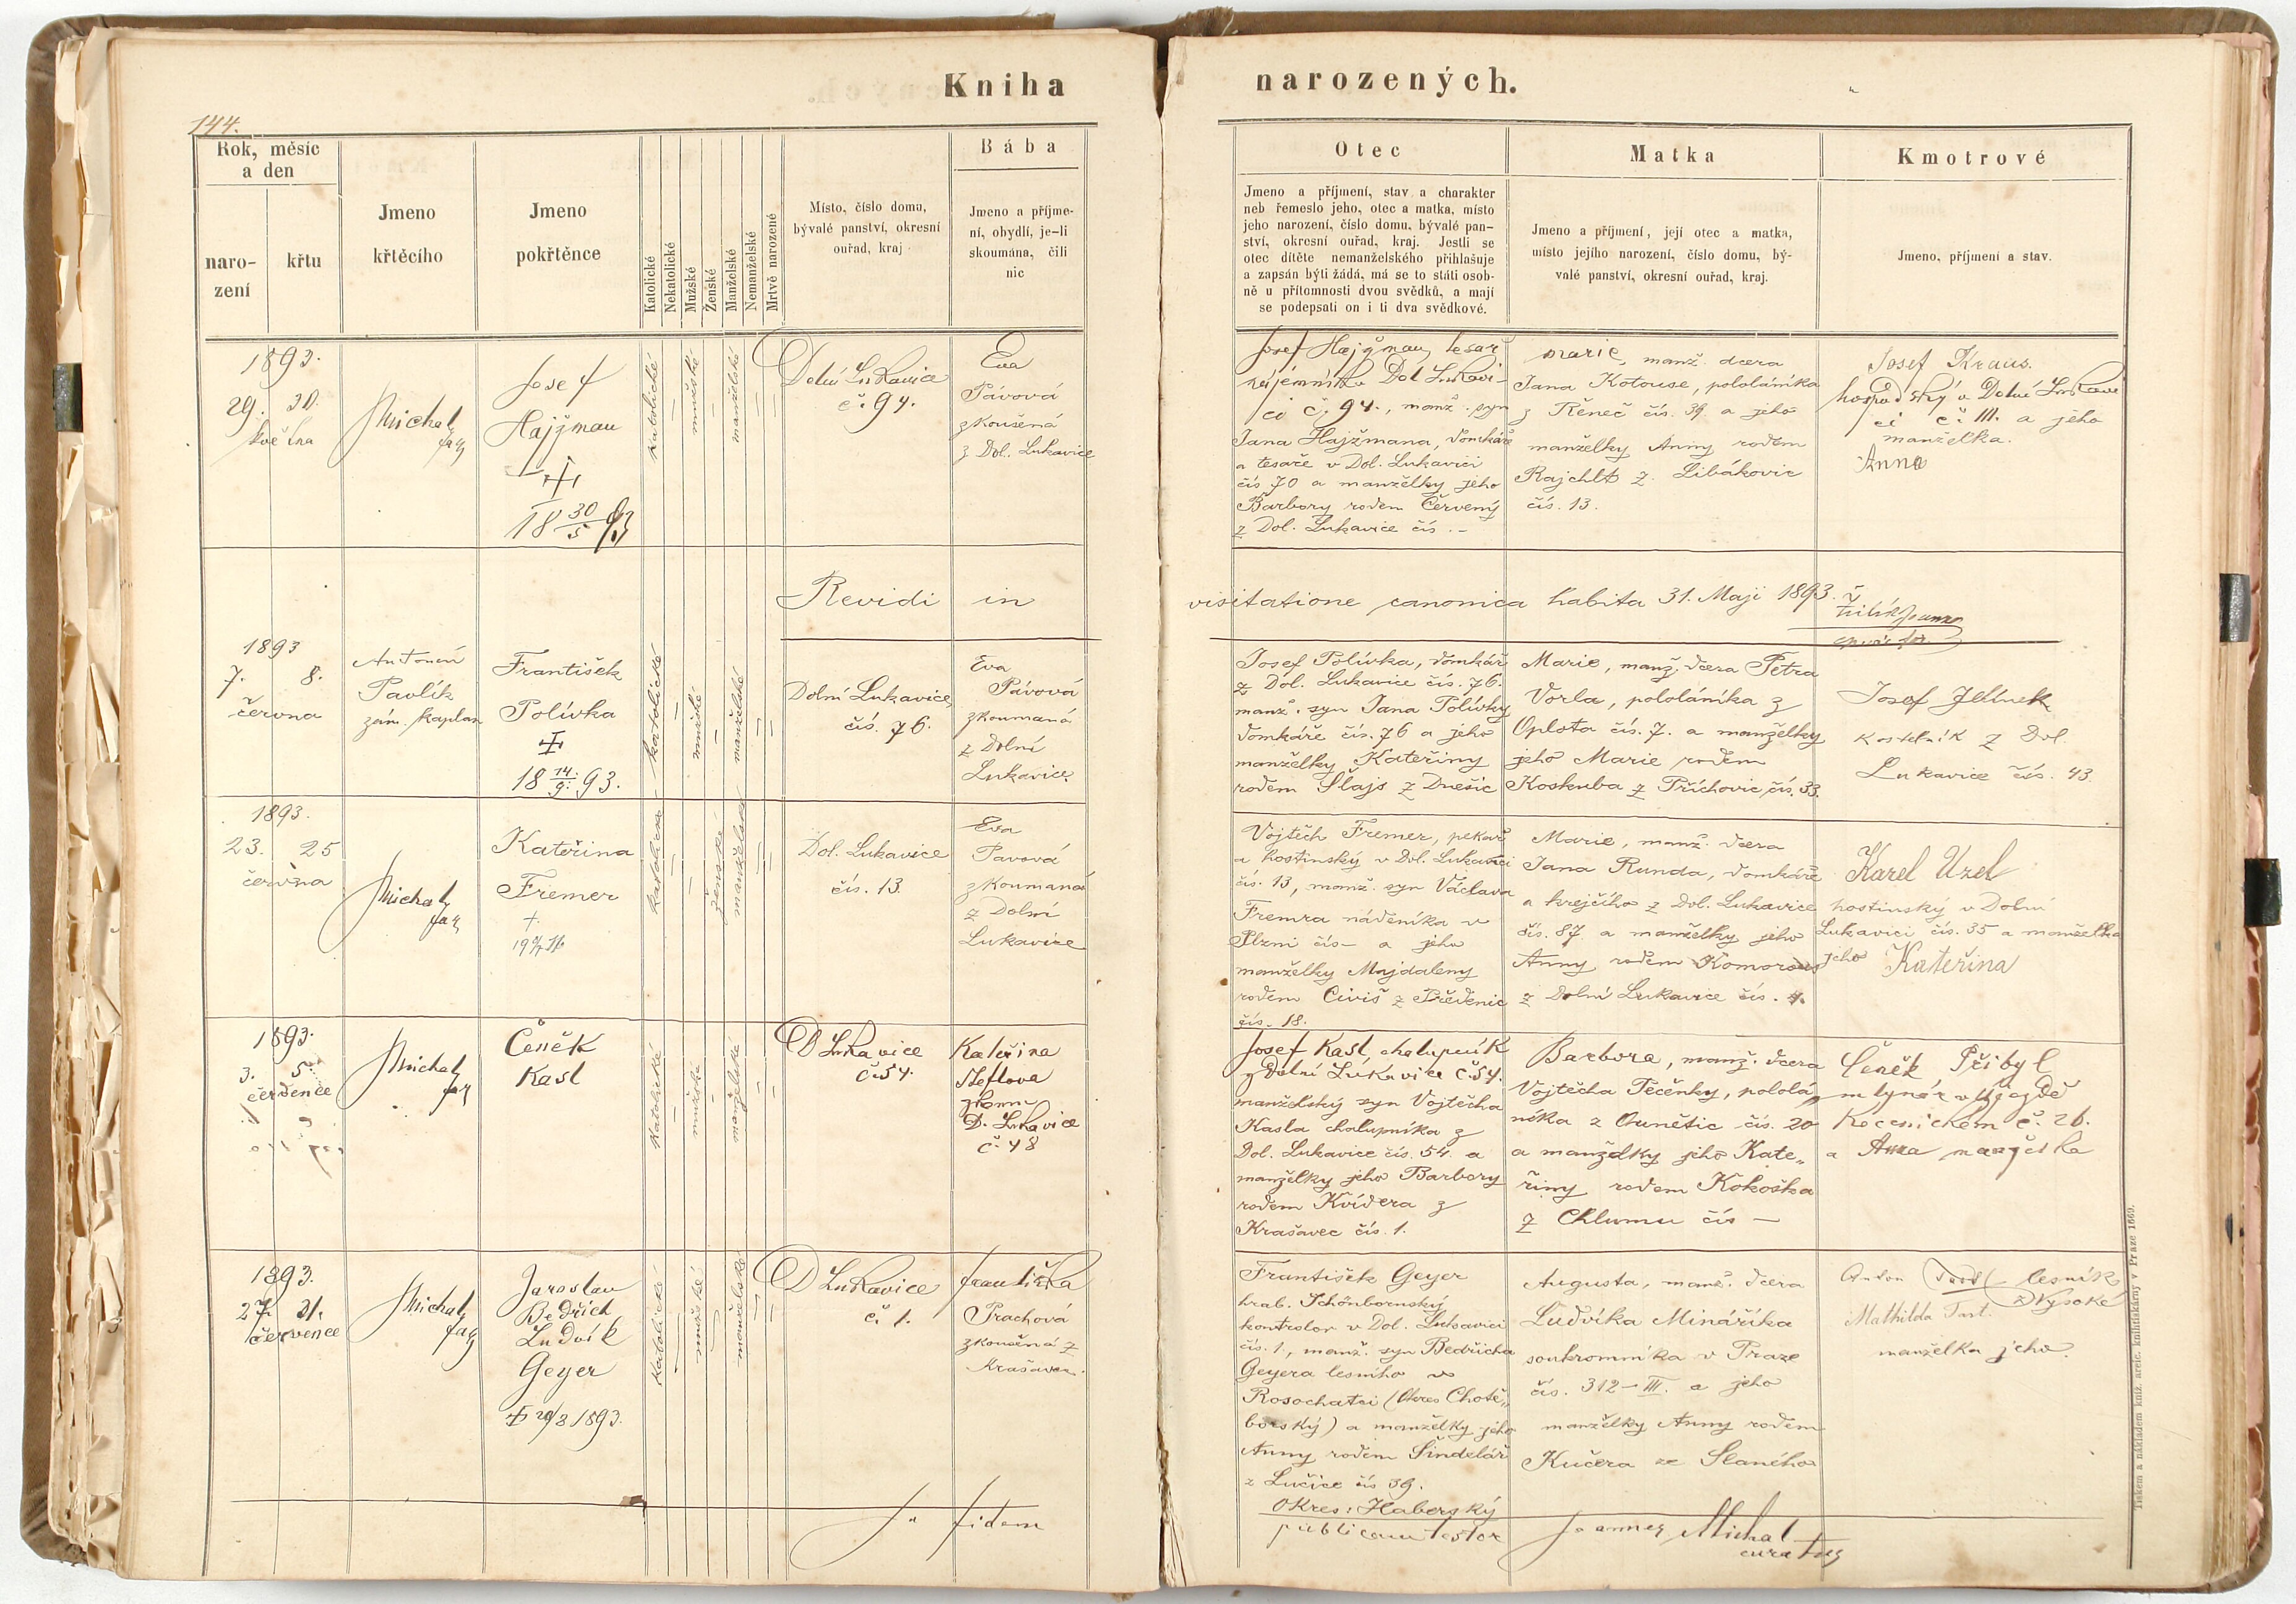 Kniha narozených.
144.
Rok, měsíc
a den
naro-
zení
křtu
Jmeno
křtěcího
Jmeno
pokřtěnce
Katolické
Nekatolické
Mužské
Ženské
Manželské
Nemanželské
Mrtvě narozené
Místo, číslo domu,
bývalé panství, okresní
ouřad, kraj
Bába
Jmeno a příjme-
ní, obydlí, je-li
skoumána, čili
nic
Otec
Jmeno a příjmení, stav a charakter
neb řemeslo jeho, otec a matka, místo
jeho narození, číslo domu, bývalé pan-
ství, okresní ouřad, kraj. Jestli se
otec dítěte nemanželského přihlašuje
a zapsán býti žádá, má se to státi osob-
ně u přítomnosti dvou svědků, a mají
se podepsati on i ti dva svědkové.
Matka
Jmeno a příjmení, její otec a matka,
místo jejího narození, číslo domu, bý-
valé panství, okresní ouřad, kraj.
Kmotrové
Jmeno, příjmení a stav.
1893.
29. 30.
května
Michal
far
Josef
Hajžman
18 30/5 93
katolické
mužské
manželské
Dolní Lukavice
č. 94.
Eva
Pávová
zkoušená
z Dol. Lukavice
Josef Hajžman, tesař
Dol Lukavi-
ci č. 94., manž. syn
Jana Hajžmana, domkáře
a tesaře v Dol. Lukavici
čís 70 a manželky jeho
Barbory rodem Červený
z Dol. Lukavice čís. –
Marie, manž. dcera
Jana Kotouse, pololáníka
z Řeneč čís. 39. a jeho
manželky Anny rodem
Rajchlt z Libákovic
čís. 13.
Josef Kraus.
v Dolní Lukavi
ci č. III. a jeho
manželka.
Anna
Revidi in visitatione canonica habita 31. Maji 1893.
1893
7. 8.
června
Antonín
Pavlík
zám. kaplan
František
Polívka
18 14/9 93.
katolické
mužské
manželské
Dolní Lukavice
čís. 76.
Eva
Pávová
zkoumaná
z Dolní
Lukavice.
Josef Polívka, domkář
z Dol. Lukavice čís. 76.
manž. syn Jana Polívky
domkáře čís. 76 a jeho
manželky Kateřiny
rodem Šlajs z Dnešic
Marie, manž. dcera Petra
Vorla, pololáníka z
Oplota čís. 7. a manželky
jeho Marie rodem
Koskuba z Příchovic čís. 33.
Josef Jelínek
kostelník z Dol.
Lukavice čís. 43.
1893.
23. 25
června
Michal
far
Kateřina
Fremer
katolické
ženské
manželské
Dol. Lukavice
čís. 13.
Eva
Pavová
zkoumaná
z Dolní
Lukavice
Vojtěch Fremer, pekař
a hostinský v Dol. Lukavici
čís. 13, manž. syn Václava
Fremra nádeníka v
Plzni čís – a jeho
manželky Majdaleny
rodem Civiš z Předenic
čís. 18.
Marie, manž. dcera
Jana Runda, domkáře
a krejčího z Dol. Lukavice
čís. 87 a manželky jeho
Anny rodem Komorous
z Dolní Lukavice čís. 4.
Karel Uzel
hostinský v Dolní
Lukavici čís. 35 a manželka
jeho Kateřina
1893.
3. 5.
července
Michal
far
Čeněk
Kasl
katolické
mužské
manželské
D Lukavice
č. 54.
Kateřina
D. Lukavice
č. 48
Josef Kasl, chalupník
z Dolní Lukavice č. 54.
manželský syn Vojtěcha
Kasla chalupníka z
Dol. Lukavice čís. 54. a
manželky jeho Barbory
rodem Kvídera z
Krašavec čís. 1.
Barbora, manž. dcera
Vojtěcha Pěčenky, pololá„
níka z Ounětic čís. 20
a manželky jeho Kate„
řiny rodem Kokoška
z Chlumu čís –
Čeněk Přibyl
mlynář v Újezdě
č. 26.
a Anna manželka
1893.
27. 31.
července
Michal
far
Jaroslav
Bedřich
Ludvík
Geyer
20/8 1893.
katolické
mužské
manželské
D Lukavice
č. 1.
Františka
Prachová
zkoušená z
Krašavec.
František Geyer
hrab. Schönbornský
kontrolor v Dol. Lukavici
čís. 1, manž. syn Bedřicha
Geyera lesního v
Rosochatci (Okres Chotě„
bořský) a manželky jeho
Anny rodem Šindelář
z Lučice čís 39.
Okres: Haberský
Augusta, manž. dcera
Ludvíka Mináříka
soukromníka v Praze
čís. 312–III. a jeho
manželky Anny rodem
Kučera ze Slaného
Anton lesník
z Vysoké
Mathilda
manželka jeho.
In fidem publicam testor Joannes Michal
curatus
Tiskem a nákladem kníž. arcib. knihtiskárny v Praze 1669.